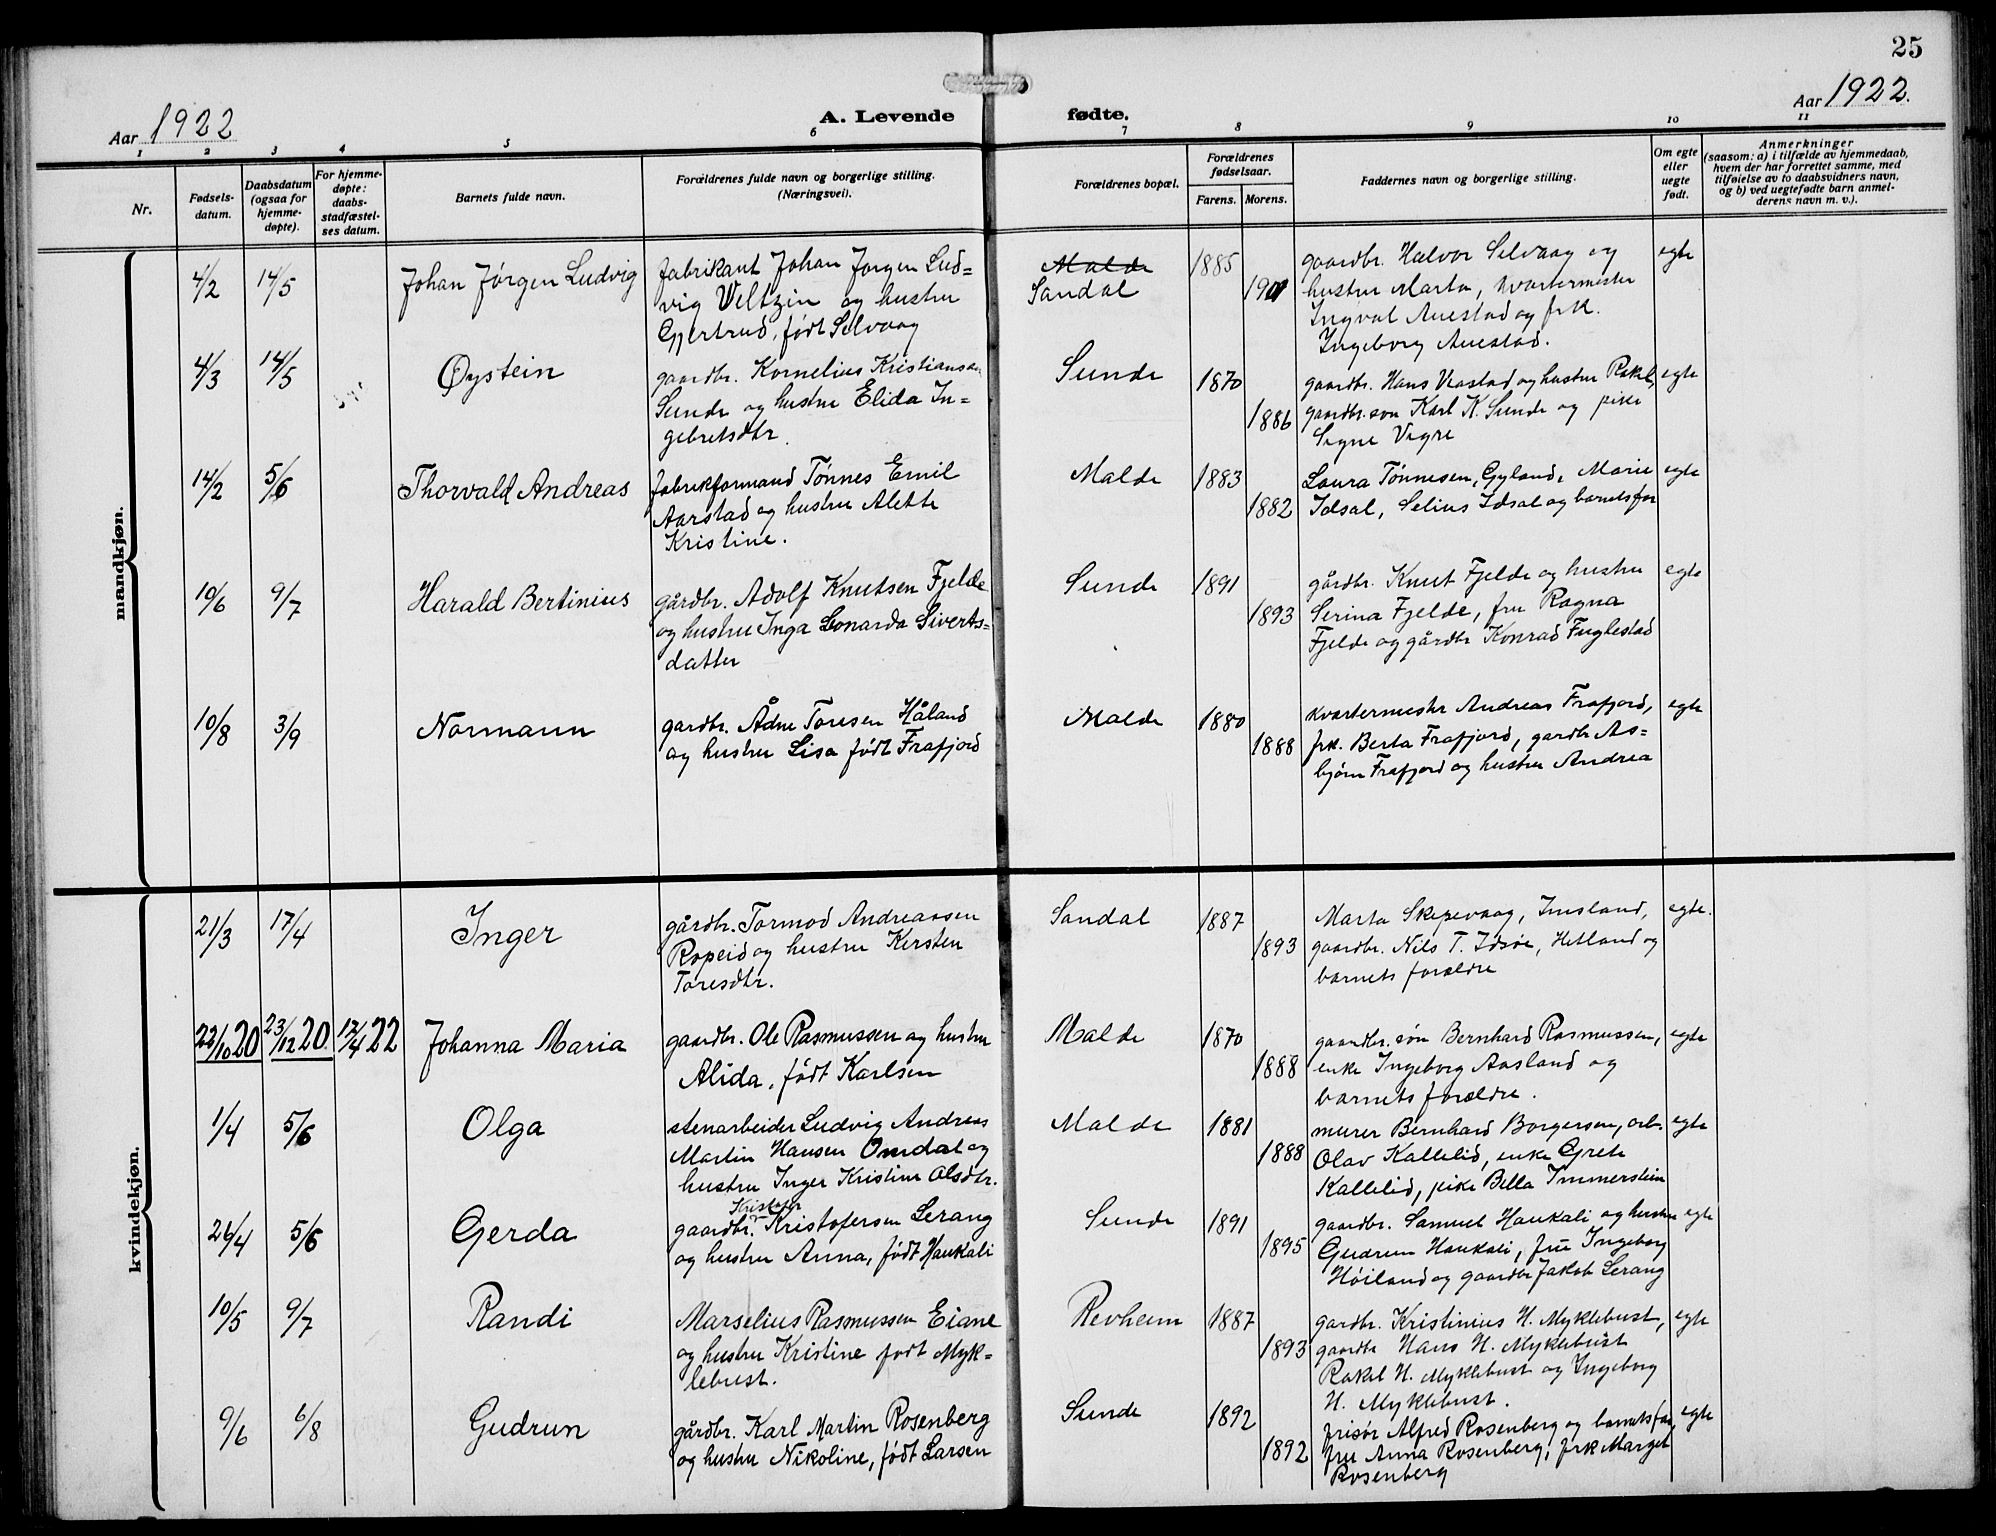 25
Aar 1922
A. Levende fødte.
Aar 1922.
1 2 3 4 5 6 7 8 9 10 11
Nr.
Fødsels-
datum.
Daabsdatum
(ogsaa for
hjemme-
døpte).
For hjemme-
døpte:
daabs-
stadfæstel-
ses datum.
Barnets fulde navn.
Forældrenes fulde navn og borgerlige stilling.
(Næringsvei).
Forældrenes bopæl.
Forældrenes
fødselsaar.
Farens. Morens.
Faddernes navn og borgerlige stilling.
Om egte
eller
uegte
født.
Anmerkninger
(saasom: a) i tilfælde av hjemmedaab,
hvem der har forrettet samme, med
tilføielse av to daabsvidners navn,
og b) ved uegtefødte barn anmel-
derens navn m. v.).
mandkjøn.
4/2 14/5 Johan Jørgen Ludvig
fabrikant Johan Jørgen Lud=
vig Veltzin og hustru
Gjertrud, født Selvaag
Malde
Sandal
1885
1901
gaardbr. Halvor Selvaag og
hustru Marta, kvartermester
Ingval Auestad og frk.
Ingeborg Auestad.
egte
4/3 14/5 Øystein
gaardbr. Kornelius Kristiansen
Sunde og hustru Elida In=
gebretsdtr.
Sunde
1870
1886
gaardbr. Hans Vestad og hustru Rakel,
gaardbr.søn Karl K. Sunde og pike
Signe Vigre
egte
14/2 5/6 Thorvald Andreas
fabrikformand Tønnes Emil
Aarstad og hustru Alette
Kristine.
Malde
1883
1882
Laura Tønnesen, Gyland, Marie
Idsal, Selius Idsal og barnets far
egte
10/6 9/7 Harald Bertinius
gårdbr. Adolf Knutsen Fjelde
og hustru Inga Leonarda Siverts=
datter
Sunde
1891
1893
gårdbr. Knut Fjelde og hustru
Serina Fjelde, fru Ragna
Fjelde og gårdbr Konrad Fuglestad
egte
10/8 3/9 Normann
gardbr. Ådne Toresen Håland
og hustru Lisa født Frafjord
Malde
1880
1888
kvartermestr Andreas Frafjord,
frk. Berta Frafjord, gardbr As=
bjørn Frafjord og hustru Andrea
egte
kvindekjøn.
21/3 17/4 Inger
gårdbr. Tormod Andreassen
Ropeid og hustru Kersten
Toresdtr.
Sandal
1887
1893
Marta Skipevaag, Imsland,
gaardbr. Nils T. Idsøe, Hetland og
barnets forældre
egte.
22/10 20 23/12 20. 17/4 22 Johanna Maria
gaardbr. Ole Rasmussen og hustru
Alida, født Karlsen
Malde
1870
1888
gaardbr. søn Bernhard Rasmussen,
enke Ingeborg Aasland og
barnets forældre.
egte
1/4 5/6 Olga
stenarbeider Ludvig Andreas
Martin Hansen Omdal og
hustru Inger Kristine Olsdtr.
Malde
1881
1888
murer Bernhard Borgersen, arb.
Olav Kallelid, enke Grete
Kallelid, pike Bella Immerstein
egte
26/4 5/6 Gerda
Kristofer
gaardbr. Kristofersen Lerang
og hustru Anna, født Haukali
Sunde
1891
1895
gaardbr. Samuel Haukali og hustru
Gudrun Haukali, frü Ingeborg
Høiland og gaardbr Jakob Lerang
egte
10/5 9/7 Randi
Marselius Rasmussen Eiane
og hustru Kristine født Myk=
lebust.
Revheim
1887
1893
gardbr. Kristinius H. Myklebust,
gaardbr Hans H. Myklebust
Rakel H. Myklebust og Ingeborg
H. Myklebust.
egte
9/6 6/8 Gudrun
gårdbr. Karl Martin Rosenberg
og hustru Nikoline, født Larsen
Sunde
1892
1892
frisør Alfred Rosenberg og barnets far,
fru Anna Rosenberg, frk Marget
Rosenberg
egte